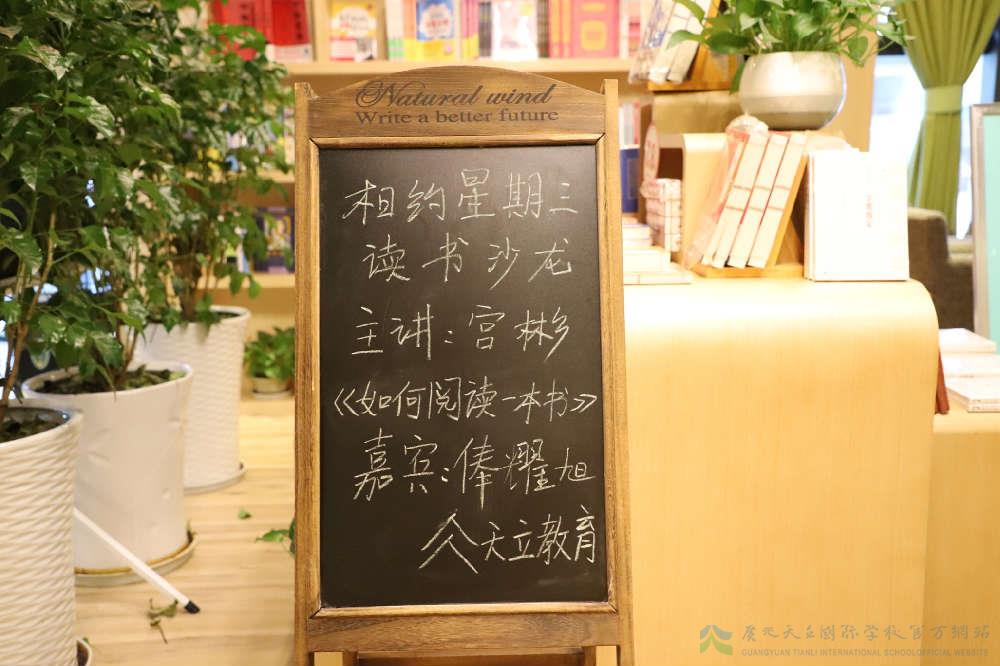 Natural wind
Write a better future
相约星期三
读书沙龙
主讲:宫彬乡
《如何阅读一本书》
嘉宾:俸耀旭
天立教育
广元天立国际学校官方網站
GUANGYUAN TIANLI INTERNATIONAL SCHOOLOFFICIAL WEBSITE